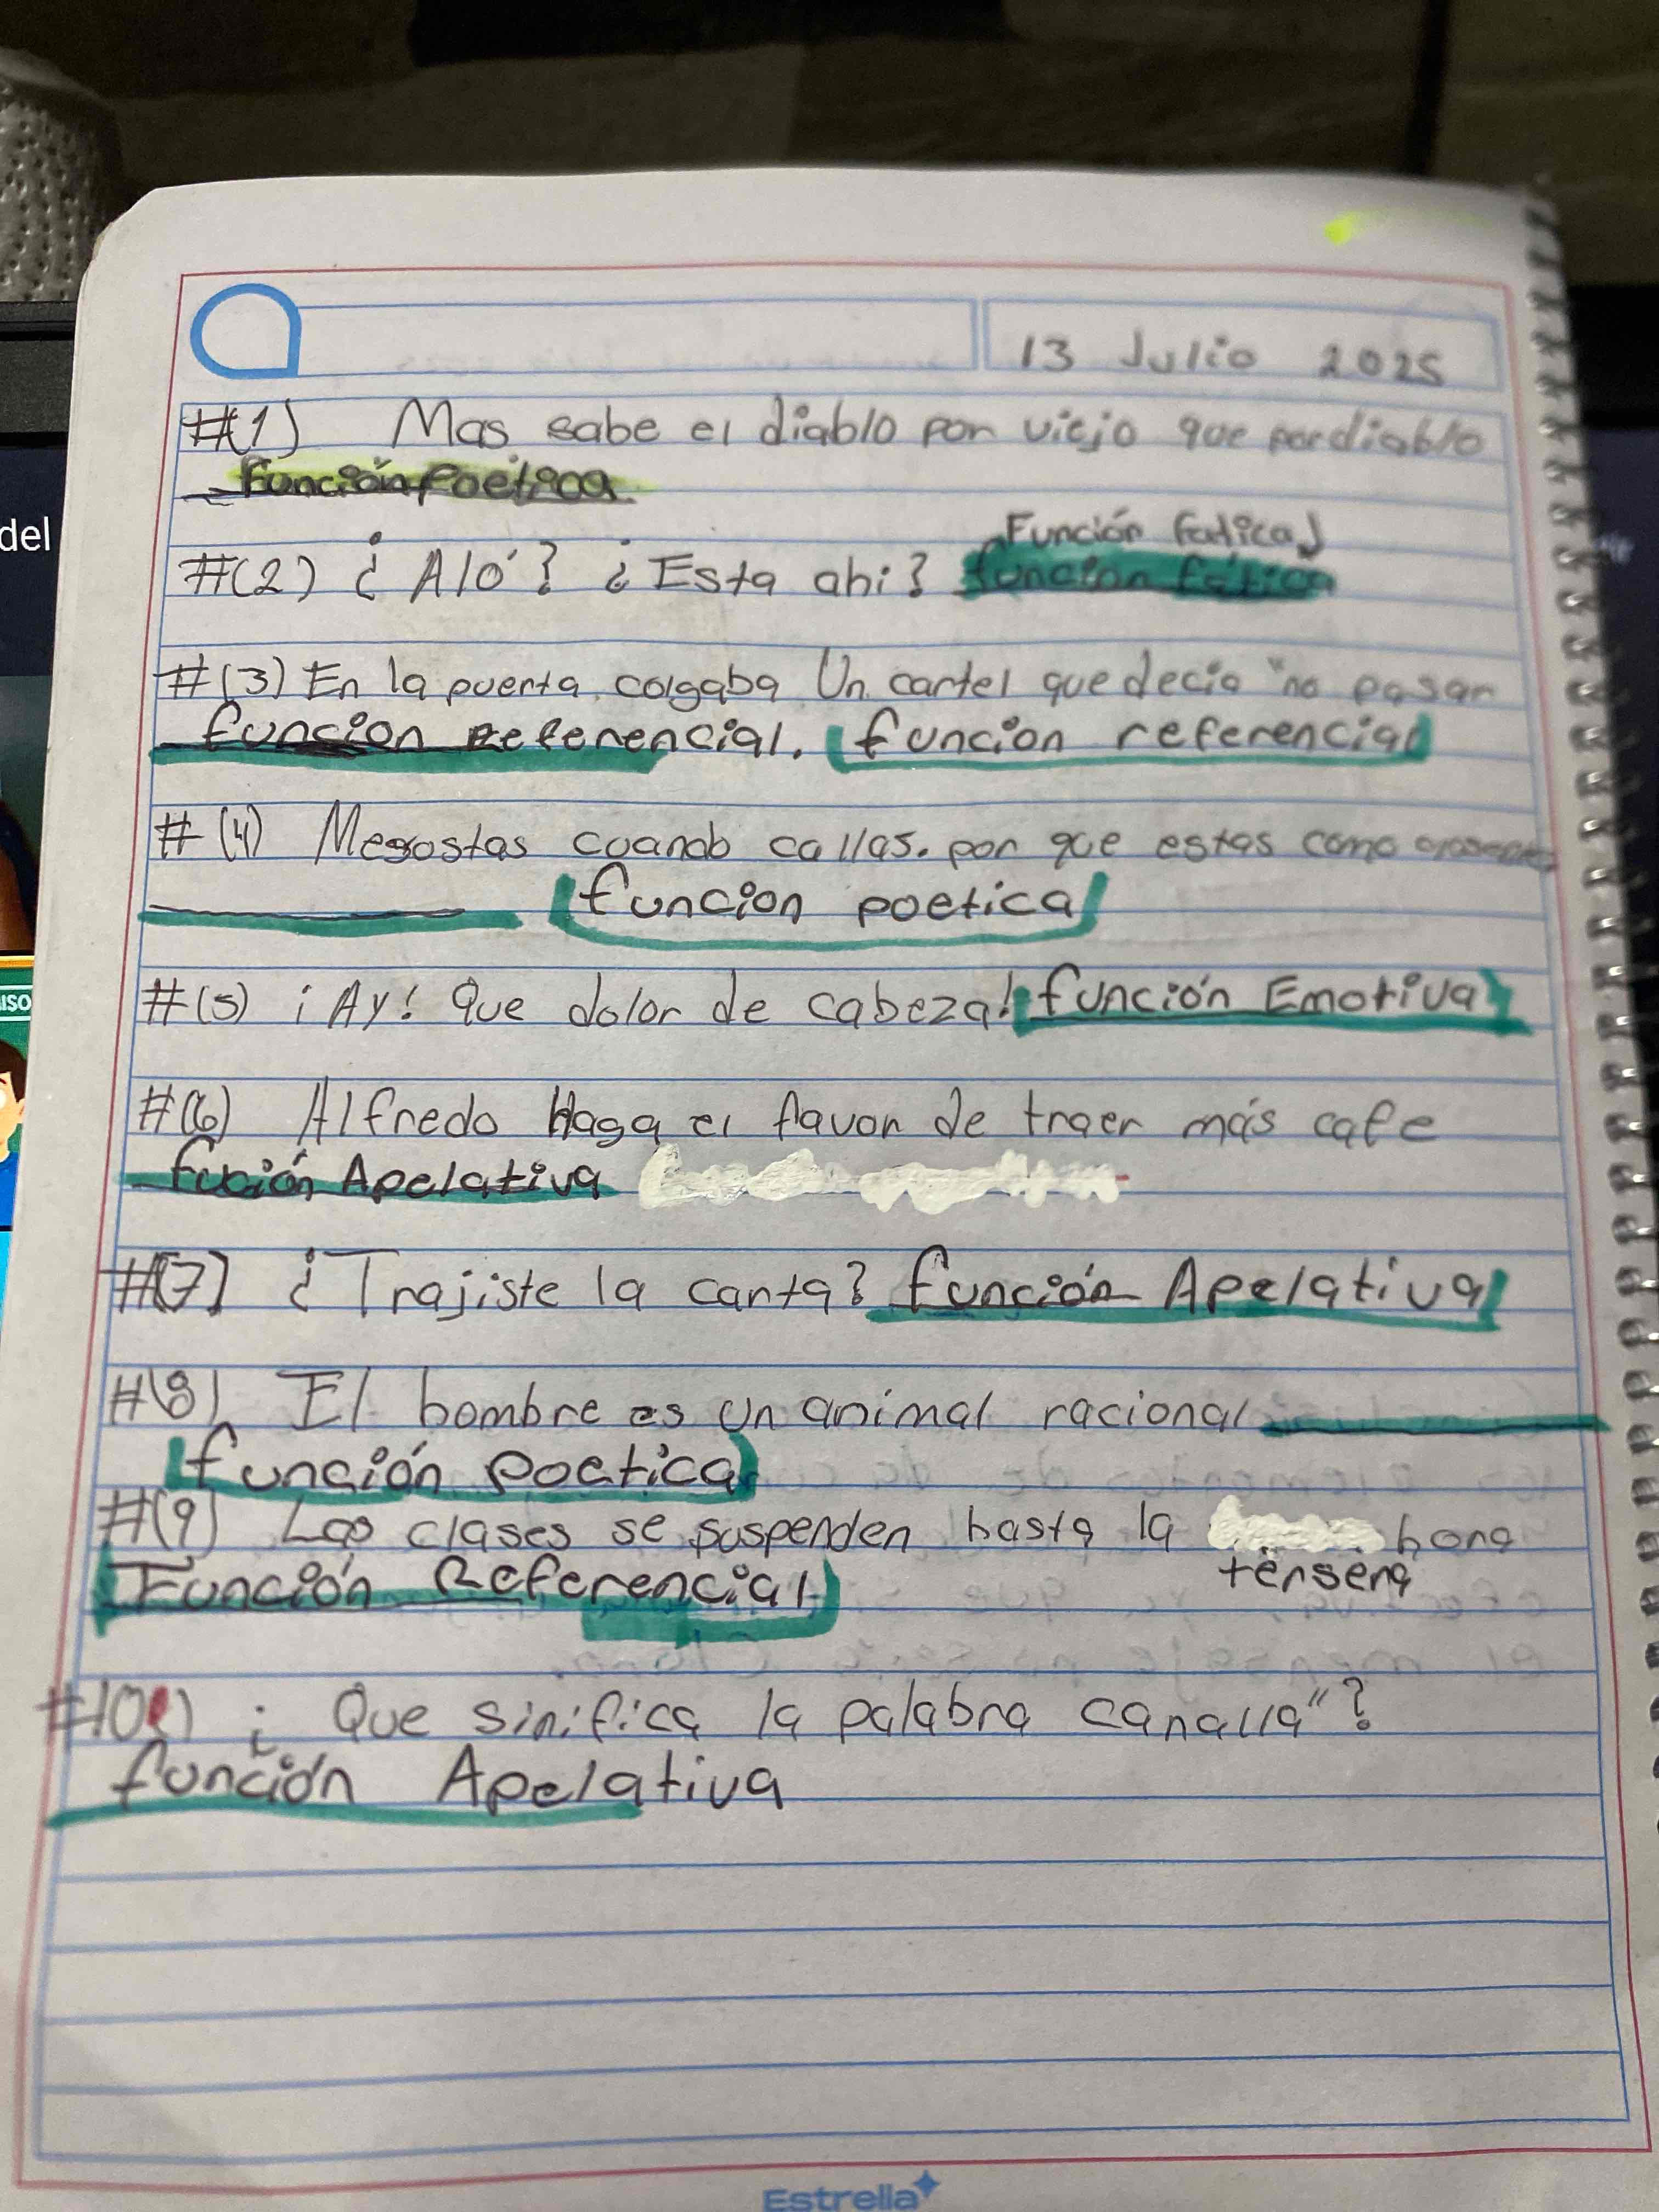 13 Julio 2025
#(1) Mas sabe el diablo por viejo que por diablo
Función Poética
Función fatica)
#(2) ¿Aló? ¿Esta ahi? función fática
del
#(3) En la puerta colgaba Un cartel que decia "no pasar
funcion Referencial. (funcion referencial
#(4) Megostas cuando callas. por que estas como
(funcion poetica)
#(5) ¡Ay! Que dolor de cabeza! función Emotiva
ISO
#(6) Alfredo Haga el favor de traer más cafe
fución Apelativa
#(7) ¿Trajiste la carta? función Apelativa
#(8) El hombre es un animal racional
(función poetica)
#(9) Las clases se suspenden hasta la hora
tersera
Función Referencial)
#10() ¿Que sinifica la palabra canalla"?
función Apelativa
Estrella